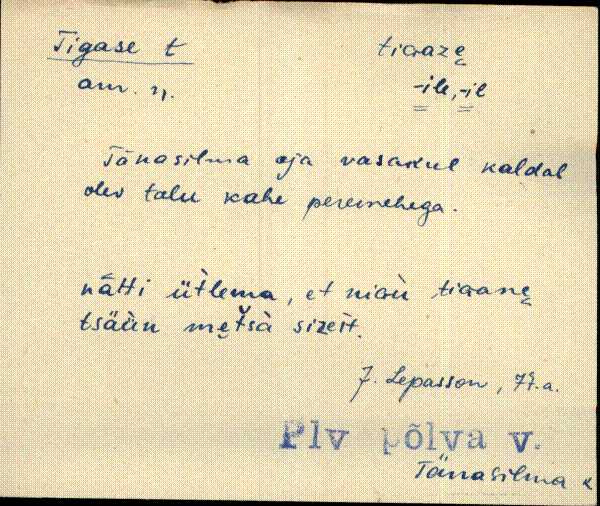 Tigase t tiɢaze̮
am. n. -ile, -il
Tänasilma oja vasakul kaldal
olev talu kahe peremehega.
nätti üt̀lema, et niɢu tiɢane̮
tsäün me̮t̆sà siześt.
J. Lepasson, 77.a.
Plv põlva v.
Tänasilma k